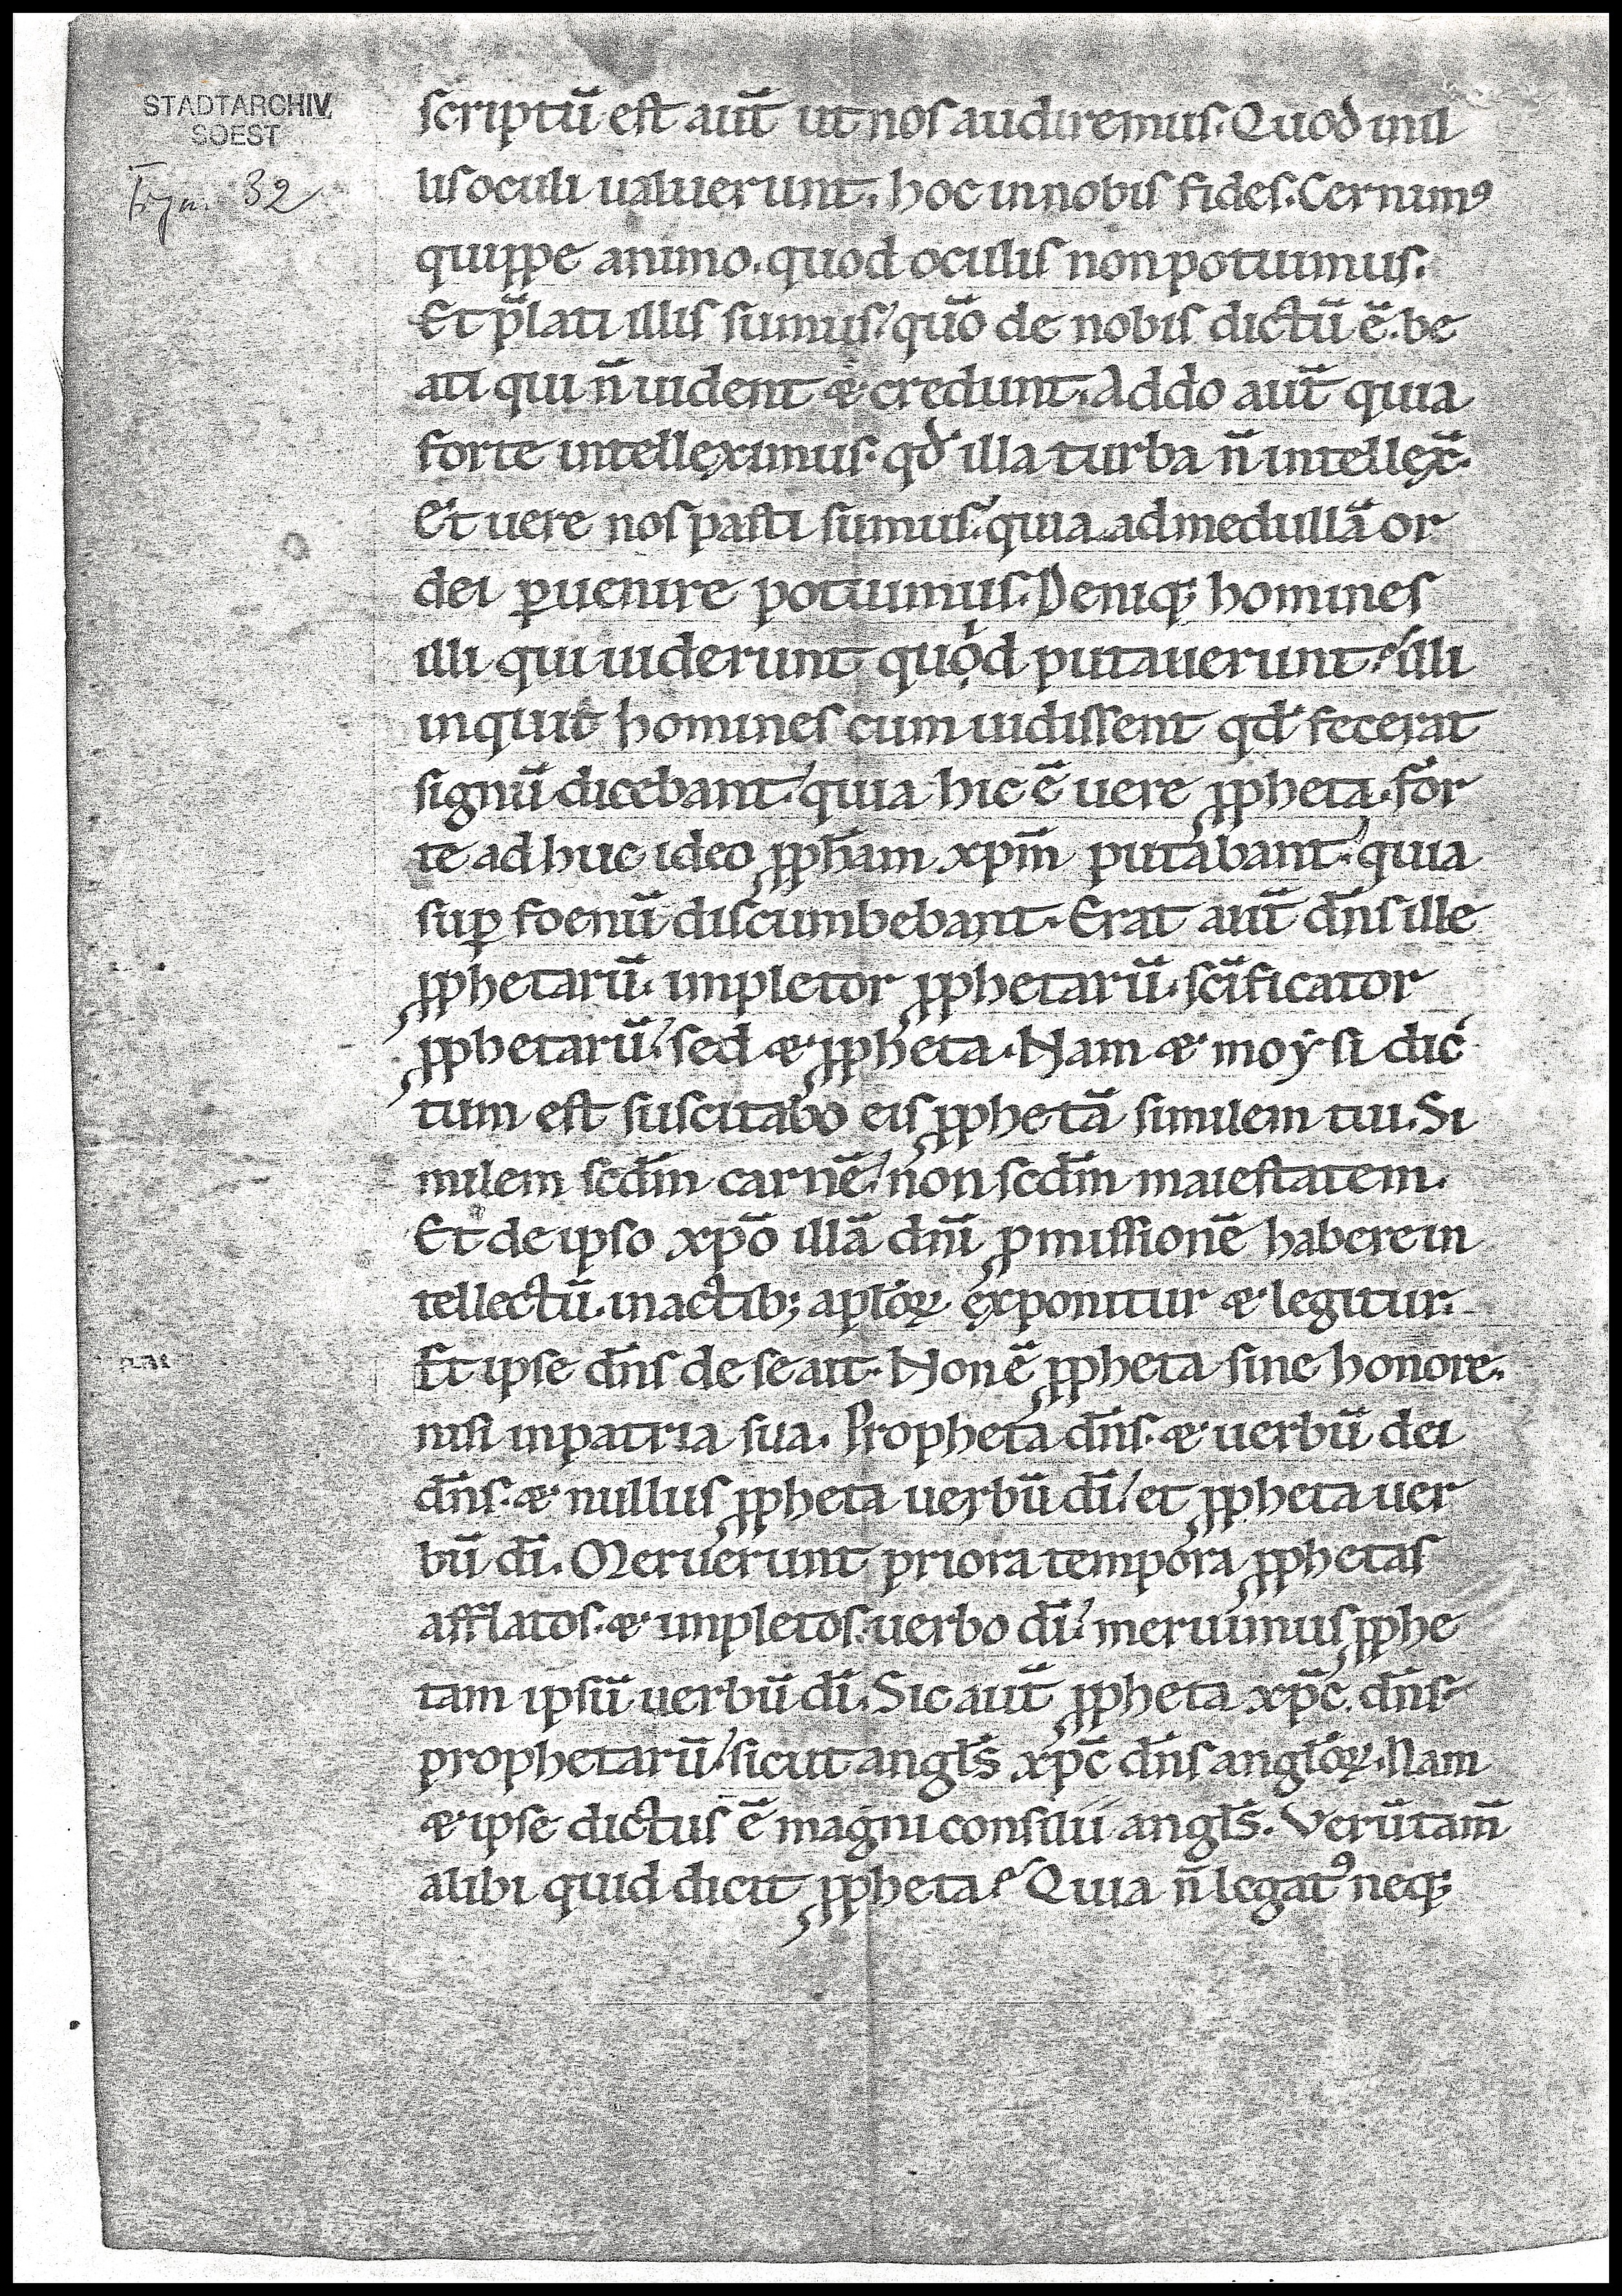 STADTARCHIV
SOEST
Fragm. 32
scriptū est aut̄ ut nos audiremus. Quod in il
lis oculi ualuerunt. hoc in nobis fides. Cernimꝰ
quippe animo. quod oculis non potuimus.
Et p̄lati illis sumus. quō de nobis dictū ē. be
ati qui n̄ uident & credunt. Addo aut̄ quia
forte intelleximus. qd̄ illa turba n̄ intellex̄.
Et uere nos pasti sumus. quia ad medullā or
dei ꝑuenire potuimus. Deniq; homines
illi qui uiderunt quod putauerunt? illi
inquit homines cum uidissent qd̄ fecerat
signū dicebant. quia hic ē uere ꝓpheta. for
te adhuc ideo ꝓph̄am xp̄m putabant. quia
suꝑ foenū discumbebant. Erat aut̄ dn̄s ille
ꝓphetarū. impletor ꝓphetarū. sc̄ificator
ꝓphetarū. sed & ꝓpheta. Nam & moẏsi dic
tum est suscitabo eis ꝓphetā similem tui. Si
milem scd̄m carnē. non scd̄m maiestatem.
Et de ipso xp̄o illā dn̄i ꝓmissionē habere in
tellectū. in actib; apl̄oꝝ exponitur & legitur.
Et ipse dn̄s de se ait. Non ē ꝓpheta sine honore.
nisi in patria sua. Propheta dn̄s. & uerbū dei
dn̄s. & nullus ꝓpheta uerbū dī. et ꝓpheta uer
bū dī. Meruerunt priora tempora ꝓphetas
afflatos. & impletos. uerbo dī. meruimus ꝓphe
tam ipsū uerbū dī. Sic aut̄ ꝓpheta xp̄c. dn̄s
prophetarū. sicut angl̄s xp̄c dn̄s angl̄oꝝ. Nam
& ipse dictus ē magni consilii angl̄s. Verūtam̄
alibi quid dicit ꝓpheta? Quia n̄ legatꝰ neq;